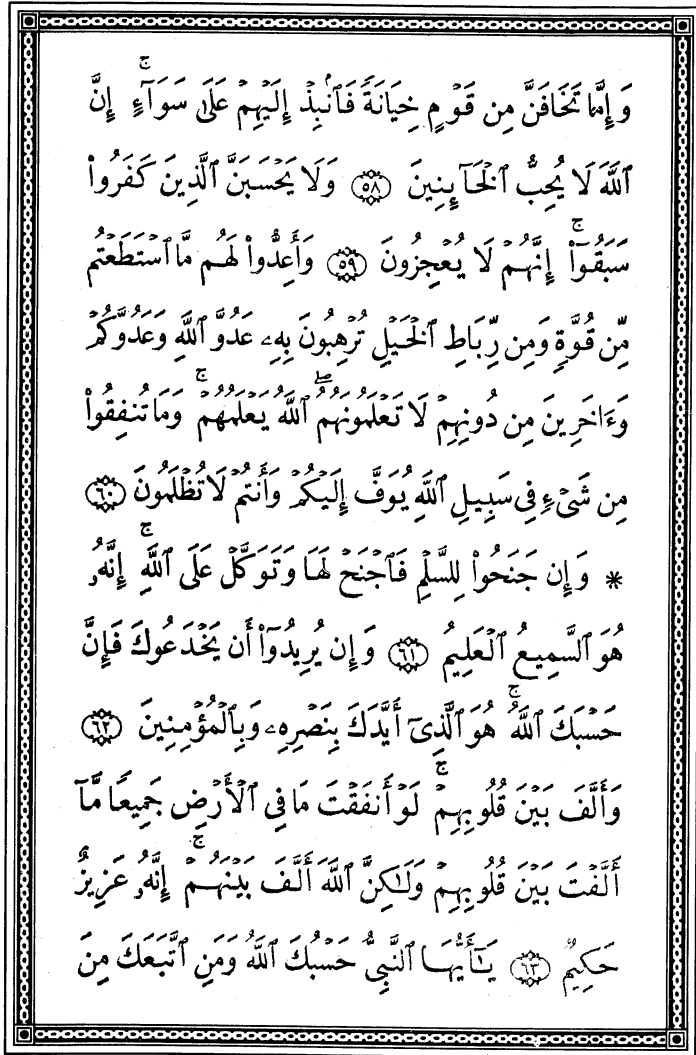 وَإِمَّا تَخَافَنَّ مِن قَوْمٍ خِيَانَةً فَٱنۢبِذْ إِلَيْهِمْ عَلَىٰ سَوَآءٍ ۚ إِنَّ
ٱللَّهَ لَا يُحِبُّ ٱلْخَآئِنِينَ ﴿٥٨﴾ وَلَا يَحْسَبَنَّ ٱلَّذِينَ كَفَرُوا۟
سَبَقُوٓا۟ ۚ إِنَّهُمْ لَا يُعْجِزُونَ ﴿٥٩﴾ وَأَعِدُّوا۟ لَهُم مَّا ٱسْتَطَعْتُم
مِّن قُوَّةٍ وَمِن رِّبَاطِ ٱلْخَيْلِ تُرْهِبُونَ بِهِۦ عَدُوَّ ٱللَّهِ وَعَدُوَّكُمْ
وَءَاخَرِينَ مِن دُونِهِمْ لَا تَعْلَمُونَهُمُ ۖ ٱللَّهُ يَعْلَمُهُمْ ۚ وَمَا تُنفِقُوا۟
مِن شَىْءٍ فِى سَبِيلِ ٱللَّهِ يُوَفَّ إِلَيْكُمْ وَأَنتُمْ لَا تُظْلَمُونَ ﴿٦٠﴾
* وَإِن جَنَحُوا۟ لِلسَّلْمِ فَٱجْنَحْ لَهَا وَتَوَكَّلْ عَلَى ٱللَّهِ ۚ إِنَّهُۥ
هُوَ ٱلسَّمِيعُ ٱلْعَلِيمُ ﴿٦١﴾ وَإِن يُرِيدُوٓا۟ أَن يَخْدَعُوكَ فَإِنَّ
حَسْبَكَ ٱللَّهُ ۚ هُوَ ٱلَّذِىٓ أَيَّدَكَ بِنَصْرِهِۦ وَبِٱلْمُؤْمِنِينَ ﴿٦٢﴾
وَأَلَّفَ بَيْنَ قُلُوبِهِمْ ۚ لَوْ أَنفَقْتَ مَا فِى ٱلْأَرْضِ جَمِيعًا مَّآ
أَلَّفْتَ بَيْنَ قُلُوبِهِمْ وَلَـٰكِنَّ ٱللَّهَ أَلَّفَ بَيْنَهُمْ ۚ إِنَّهُۥ عَزِيزٌ
حَكِيمٌ ﴿٦٣﴾ يَـٰٓأَيُّهَا ٱلنَّبِىُّ حَسْبُكَ ٱللَّهُ وَمَنِ ٱتَّبَعَكَ مِنَ